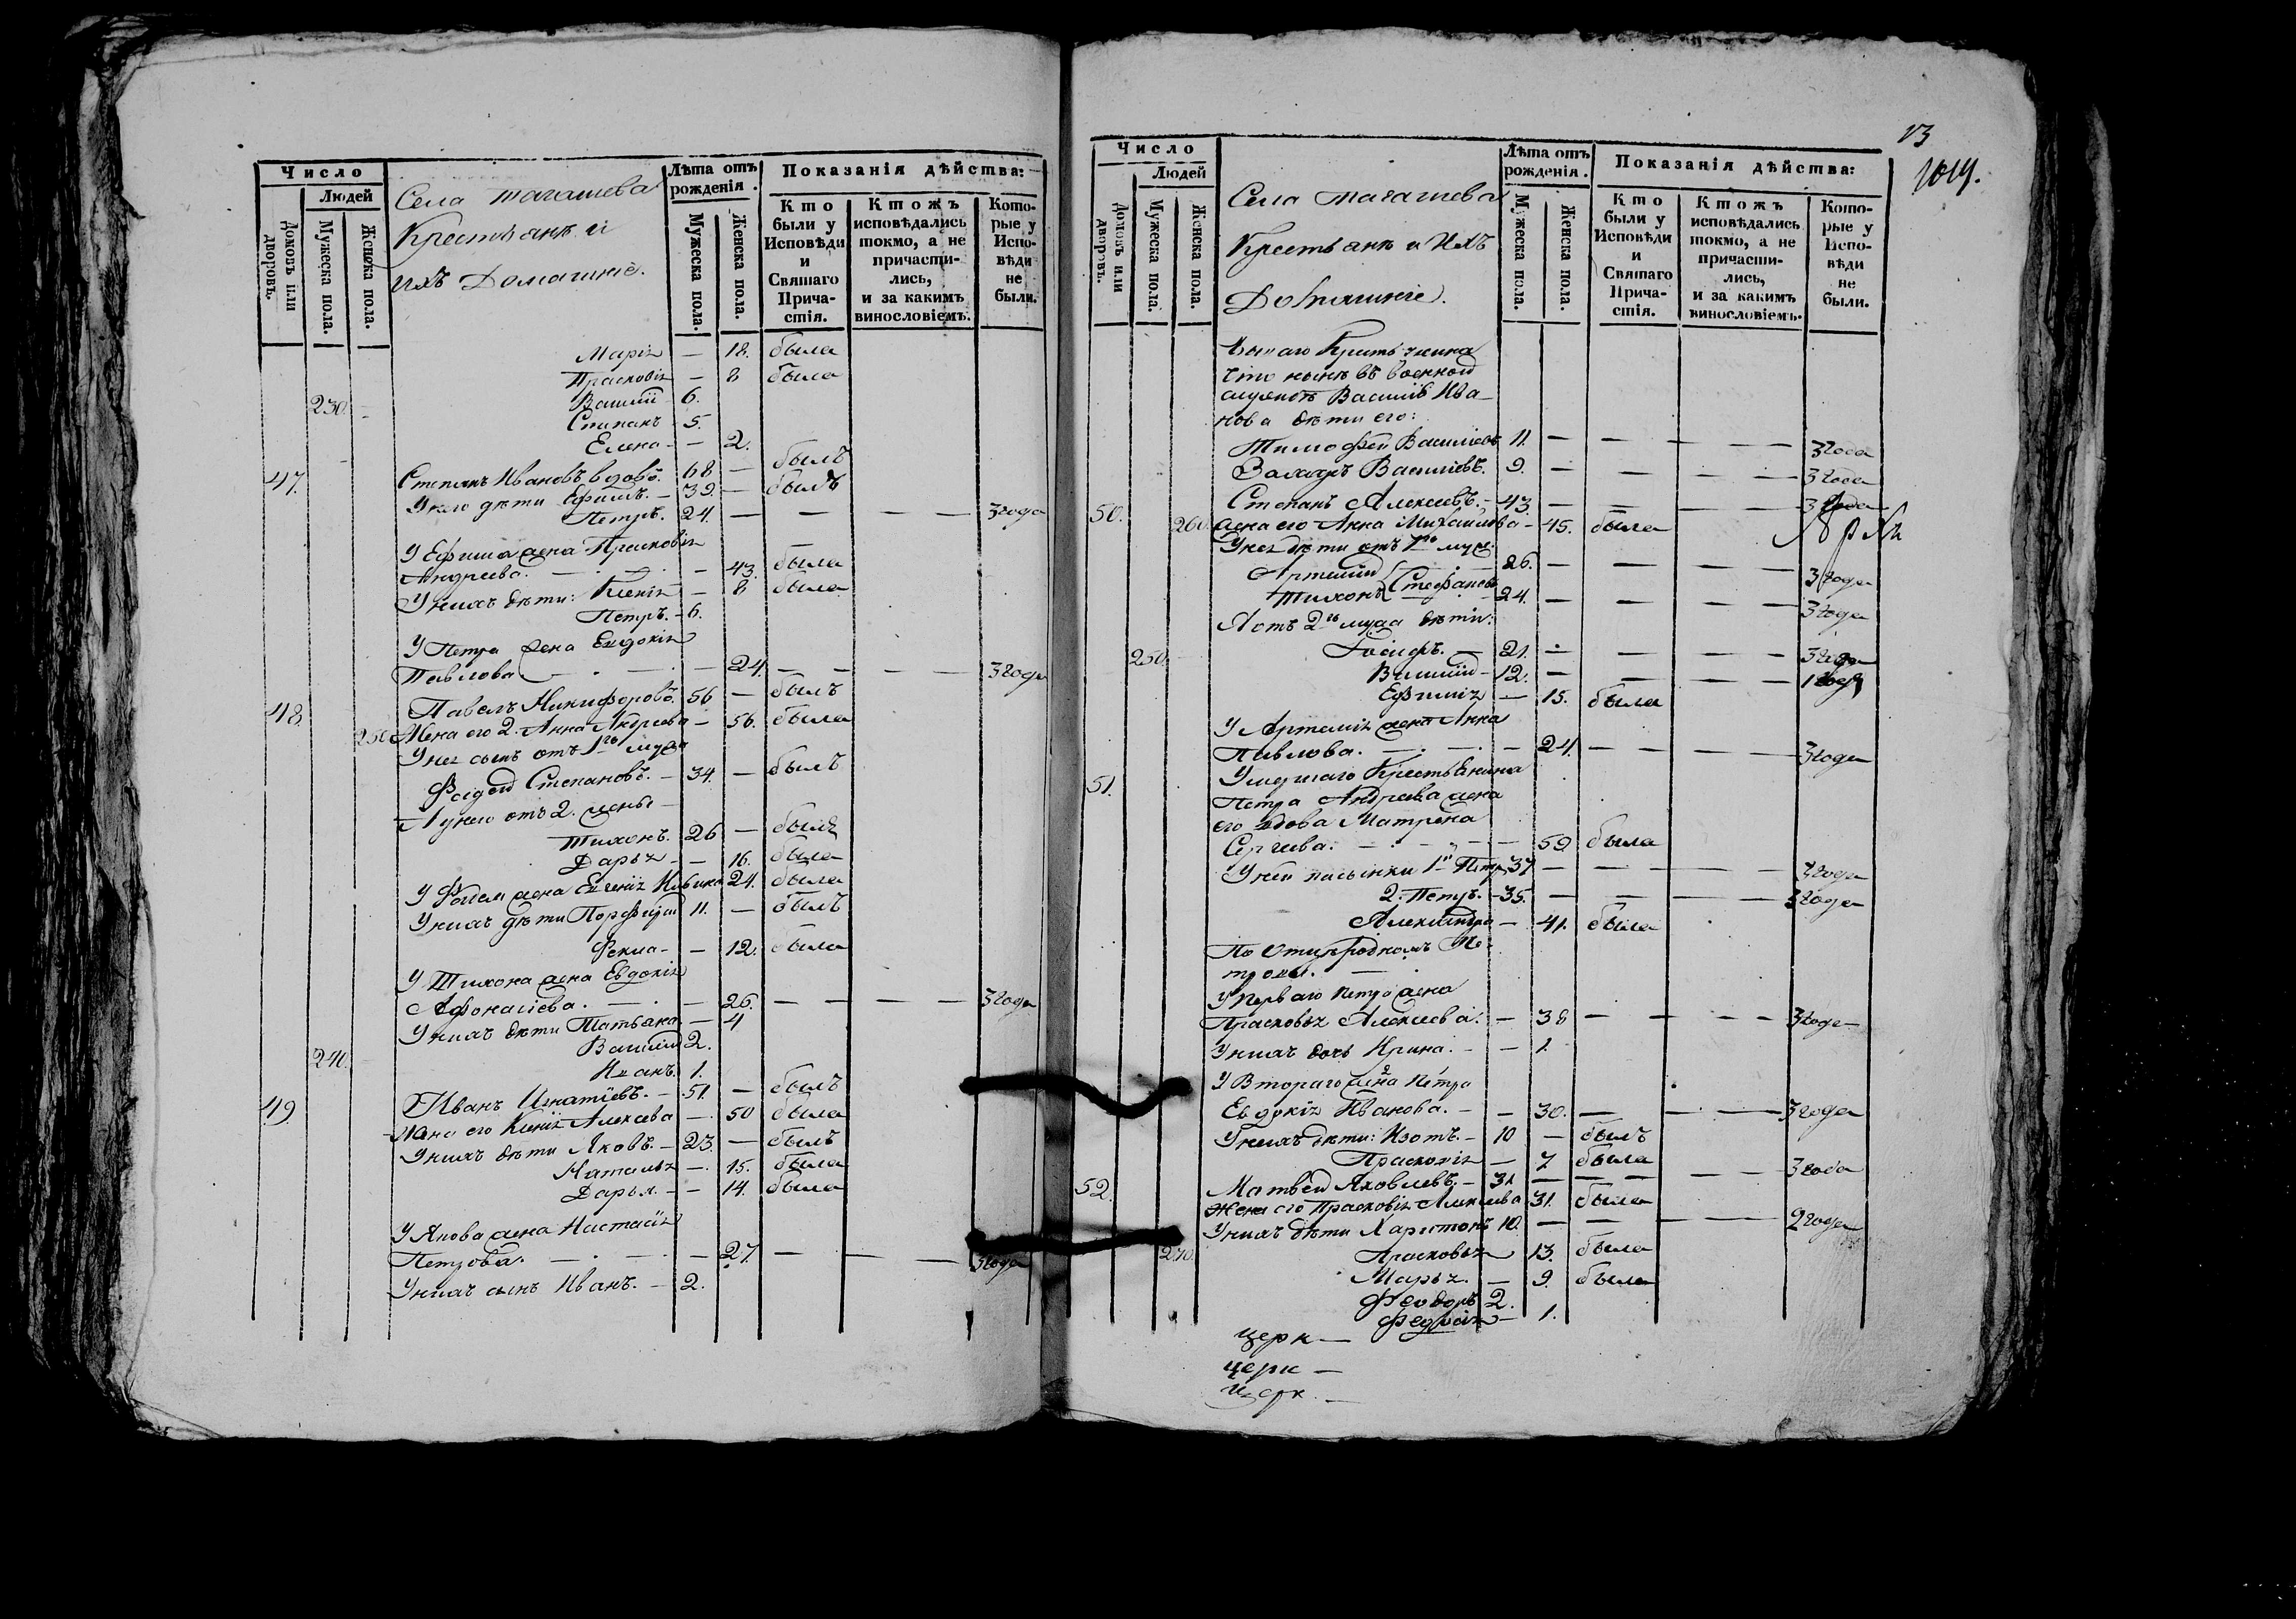 Число
Людей
Домовъ или дворовъ.
Мужеска пола.
Женска пола.
Села
Крестьянъ и
ихъ Домашніе.
Лѣта отъ рожденія.
Мужеска пола.
Женска пола.
Показанія дѣйства:
Кто были у Исповѣди и Святаго Причастія.
Ктожъ исповѣдались токмо, а не причастились, и за какимъ винословіемъ.
Которые у Исповѣди не были.
Марія — 18. была
Прасковія — 8 была
230. Василій 6.
Степанъ 5.
Елена — 2.
47. Степанъ Ивановъ вдовъ. 68 — былъ
У него дѣти Ефимъ. — 39. — былъ
Петръ. 24. — — — — 3 года
У Ефима жена Прасковія
Андреева. — 43. была
У нихъ дѣти: Ксенія — 8 была
Петръ. — 6.
У Петра жена Евдокія
Павлова — 24. — — — — 3 года
48. Павелъ Никифоровъ. 56 — былъ
250 Жена его 2. Анна Андреева — 56. была
У нея сынъ отъ 1го мужа
Степановъ. — 34. — былъ
А у него отъ 2. жены —
Тихонъ. 26 — былъ
Дарья — — 16. была
У жена 24. была
У нихъ дѣти Порфирій 11. — былъ
Фекла — — 12. была
У Тихона жена Евдокія
Афонасіева. — — 26. — — — — 3 года
У нихъ дѣти Татьяна — — 4
Василій 2.
240. Иванъ. 1.
49. Иванъ Игнатіевъ. — 51. — былъ
Жена его Ксенія Алексева — 50 была
У нихъ дѣти Яковъ. — 23. — былъ
Наталья — 15. была
Дарья. — — 14. была
У Якова жена Настасія
Петрова. — — 27. — — — 3 года
У нихъ сынъ Иванъ. — 2.
13
1014.
Число
Людей
Домовъ или дворовъ.
Мужеска пола.
Женска пола.
Села
Крестьянъ и Ихъ
Домашніе.
Лѣта отъ рожденія.
Мужеска пола.
Женска пола.
Показанія дѣйства:
Кто были у Исповѣди и Святаго Причастія.
Ктожъ исповѣдались токмо, а не причастились, и за какимъ винословіемъ.
Которые у Исповѣди не были.
Крестьянина
что нынѣ въ военной
службѣ Василія Ива-
нова дѣти его:
Тимофей Василіевъ 11. — — — — 3 года
Василіевъ. 9. — — — 3 года
50. Степанъ Алексеевъ. — 43. — — — — 3 года
260. Жена его Анна Михайлова — 45. была
У нея дѣти отъ 1го муж.
Артемій 26. — — — — 3 года
Тихонъ Стефановы 24. — — — — 3 года
А отъ 2го мужа дѣти:
250. Іосифъ. — 21. — — — — 3 года
Василій — 12. — — — — 1 годъ
Ефимія — 15. была
У Артемія жена Анна
Павлова. — — 24. — — — — 3 года
51. Умершаго Крестьянина
Петра Андреева жена
его вдова Матрона
Сергеева. — 59 была
У ней пасынки 1й Петръ 37 — — — — 3 года
2. Петръ. — 35. — — — — 3 года
Александра — 41. была
По Отцу роднымъ Пе-
тровы. —
У перваго Петра жена
Прасковья Алексеева. — 38 — — — — 3 года
У нихъ дочь Ирина. — — 1.
У Втораго жена Петра
Евдокія Иванова. — — 30. — — — 3 года
У нихъ дѣти: Изотъ. — 10 — былъ
Прасковія — 7 была
52. Матвей Яковлевъ. — 31 — — — — 3 года
Жена его Прасковія Алексеева 31. была
У нихъ дѣти Харитонъ 10. — — — 2 года
270. Прасковья 13. была
Марья. — 9. была
Феодоръ 2.
— 1.
церк —
церк —
церк. —